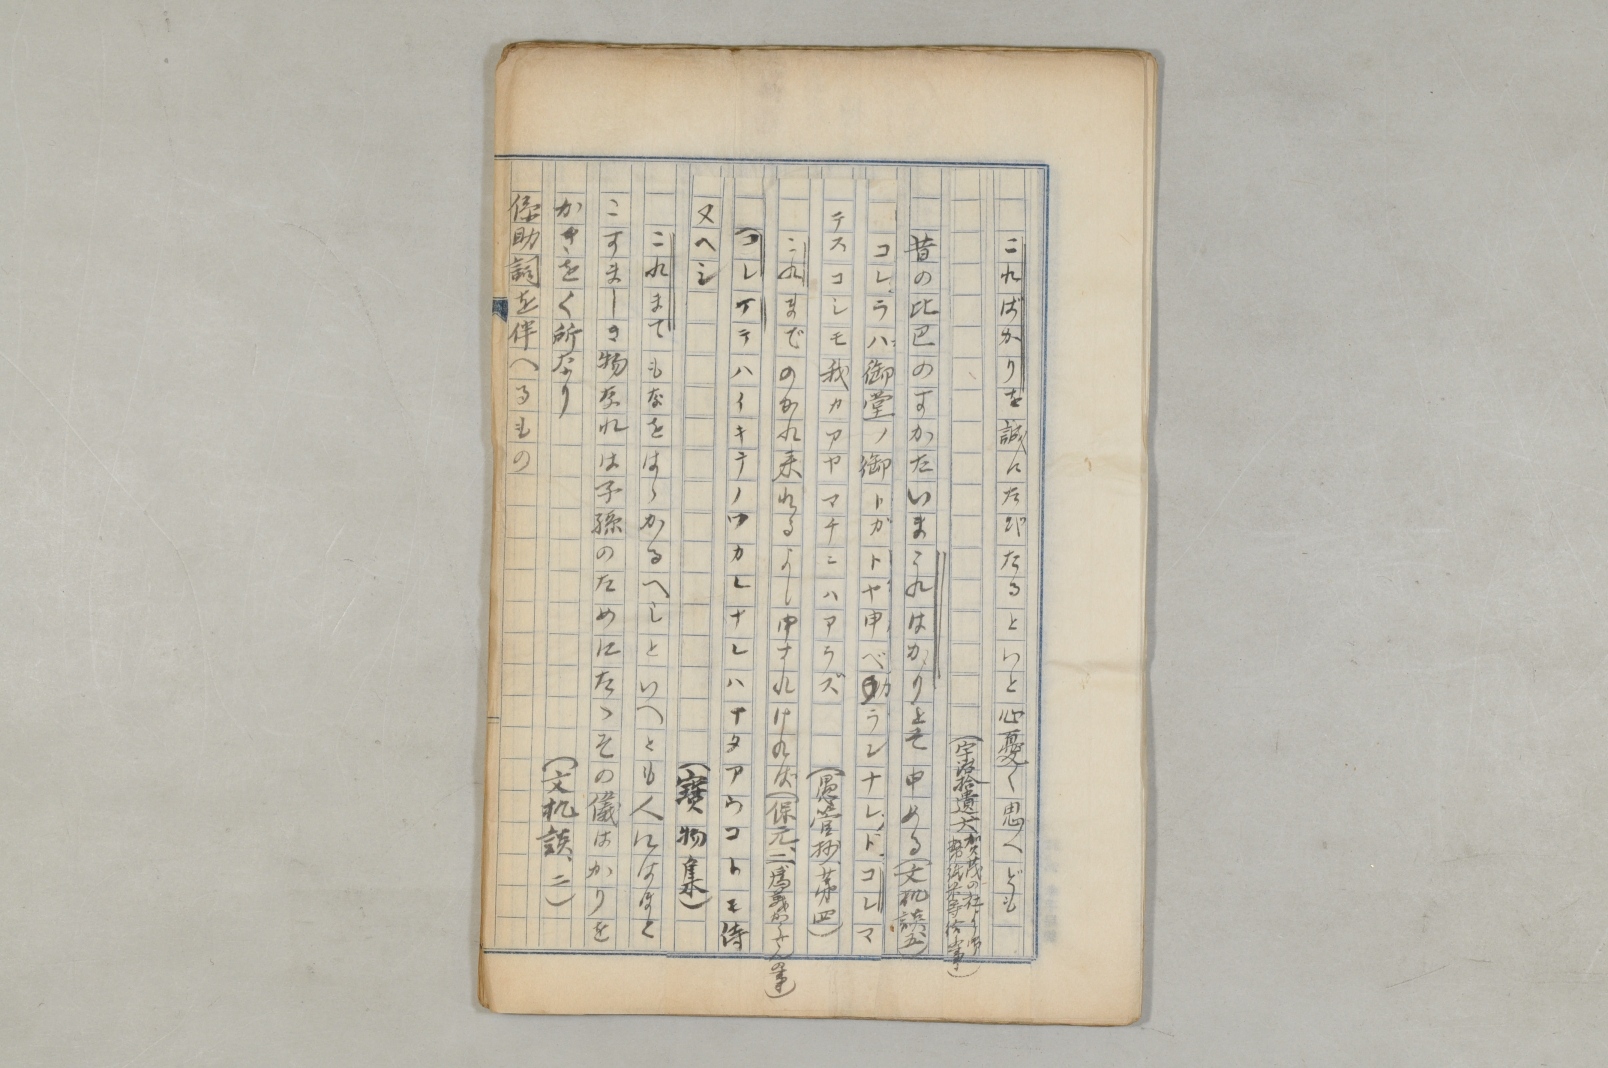 こればかりを誠にたびたるといと心憂く思へども
(宇治拾遺六 賀茂の社より御幣紙米等給事)
昔の比巴のすかたいまこれはかりとそ申める(文机談、五)
コレラハ御堂ノ御トガトヤ申ベカランナレド、コレマ
テスコシモ我カアヤマチニハアラズ
(愚管抄、第四)
これまでのかれ来れるよし申すれければ(保元、二、為義かうさんの事)
コレマテハイキテノワカレナレハマタアウコトモ待
又ヘシ
(寶物集)
これまてもなをはゝかるへしといへとも人にはまと
こすましき物なれは子孫のためにたゝその儀はかりを
かきをく所なり
(文机談、二)
係助詞を伴へるもの